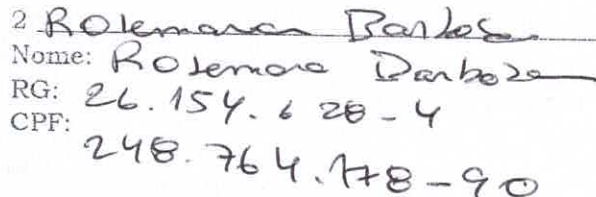 2 Rosemara Barbosa
Nome: Rosemara Barboza
RG: 26.154.628-4
CPF:
248.764.178-90